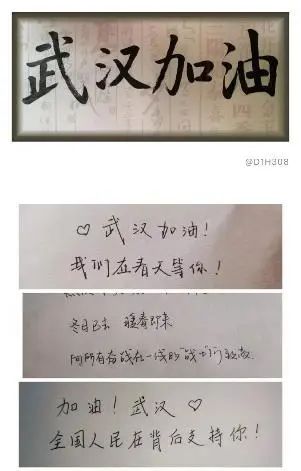 武汉加油
@D1H308
♡ 武汉加油！
我们在春天等你！
冬日已去 暖春即来
向所有奋战在一线的"战士"们致敬
加油！武汉 ♡
全国人民在背后支持你！